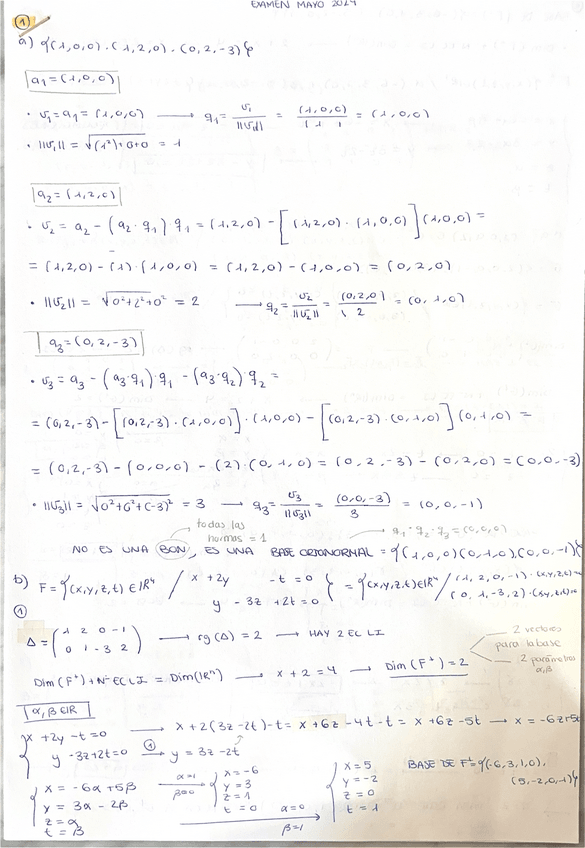 EXAMEN MAYO 2024
①
a) {(1,0,0)·(1,2,0)·(0,2,-3)}
a₁=(1,0,0)
· v₁=a₁=(1,0,0) → q₁= v₁/||v₁|| = (1,0,0)/(1 1 1) = (1,0,0)
· ||v₁|| = √(1²)+0+0 = 1
a₂=(1,2,0)
· v₂ = a₂ - (a₂·q₁)·q₁ = (1,2,0) - [(1,2,0)·(1,0,0)](1,0,0) =
= (1,2,0) - (1)·(1,0,0) = (1,2,0) - (1,0,0) = (0,2,0)
· ||v₂|| = √0²+2²+0² = 2 → q₂ = v₂/||v₂|| = (0,2,0)/2 = (0,1,0)
q₃=(0,2,-3)
· v₃ = a₃ - (a₃·q₁)·q₁ - (a₃·q₂)·q₂ =
= (0,2,-3) - [(0,2,-3)·(1,0,0)]·(1,0,0) - [(0,2,-3)·(0,1,0)](0,1,0) =
= (0,2,-3) - (0,0,0) - (2)·(0,1,0) = (0,2,-3) - (0,2,0) = (0,0,-3)
· ||v₃|| = √0²+0²+(-3)² = 3 → q₃ = v₃/||v₃|| = (0,0,-3)/3 = (0,0,-1)
todas las normas = 1
q₁·q₂·q₃=(0,0,0)
NO ES UNA BON, ES UNA BASE ORTONORMAL = {(1,0,0)(0,1,0),(0,0,-1)}
b) F={(x,y,z,t)∈ℝ⁴ / x+2y -t=0
y -3z +2t=0} = {(x,y,z,t)∈ℝ⁴ / (1,2,0,-1)·(x,y,z,t)=0
(0,1,-3,2)·(x,y,t)=0
①
Δ = (1 2 0 -1
0 1 -3 2) → rg(Δ)=2 → HAY 2 EC LI
2 vectores para la base
2 parámetros α,β
Dim(F⊥)+Nº EC LI = Dim(ℝⁿ) → x+2=4 → Dim(F⊥)=2
α,β∈ℝ
{x+2y-t=0 → x+2(3z-2t)-t=x+6z-4t-t=x+6z-5t → x=-6z+5t
y-3z+2t=0 ① → y=3z-2t
BASE DE F⊥={(-6,3,1,0),
(5,-2,0,1)}
{x=-6α+5β
y=3α-2β
z=α
t=β
α=1
β=0
{x=-6
y=3
z=1
t=0
α=0
β=1
{x=5
y=-2
z=0
t=1